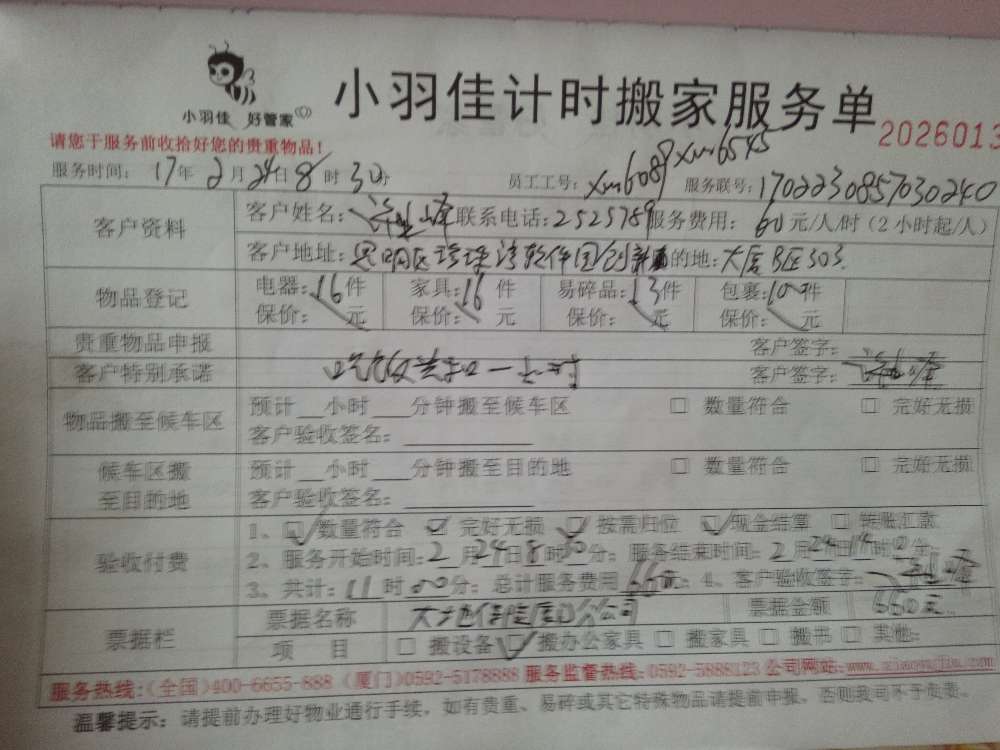 小羽佳 好管家
小羽佳计时搬家服务单
2026013
请您于服务前收拾好您的贵重物品!
服务时间: 17年2月24日8时30分 员工工号: xm6089 xm6545 服务联号: 1702230857030240
客户资料 客户姓名: 峰 联系电话: 2525789 服务费用: 60元/人/时(2小时起/人)
客户地址: 思明区珍珠湾软件园创新 目的地: 大厦B区303.
物品登记 电器: 16件 家具: 16件 易碎品: 13件 包裹: 10件
保价: 元 保价: 元 保价: 元 保价: 元
贵重物品申报 客户签字:
客户特别承诺 吃饭 一小时 客户签字: 峰
物品搬至候车区 预计__小时___分钟搬至候车区 □ 数量符合 □ 完好无损
客户验收签名:
候车区搬至目的地 预计__小时___分钟搬至目的地 □ 数量符合 □ 完好无损
客户验收签名:
验收付费 1、☑数量符合 ☑完好无损 ☑按需归位 ☑现金结算 □转账汇款
2、服务开始时间: 2月24日8时30分; 服务结束时间: 2月24日14时0分
3、共计: 11时00分; 总计服务费用660元; 4、客户验收签字: 峰
票据栏 票据名称 大地保险厦门分公司 票据金额 660元
项 目 □ 搬设备 ☑ 搬办公家具 □ 搬家具 □ 搬书 □ 其他:
服务热线:(全国)400-6655-888 (厦门)0592-5178888 服务监督热线:0592-5888123 公司网站:www.xiaoyujia.com
温馨提示: 请提前办理好物业通行手续, 如有贵重、易碎或其它特殊物品请提前申报, 否则我司不予负责。